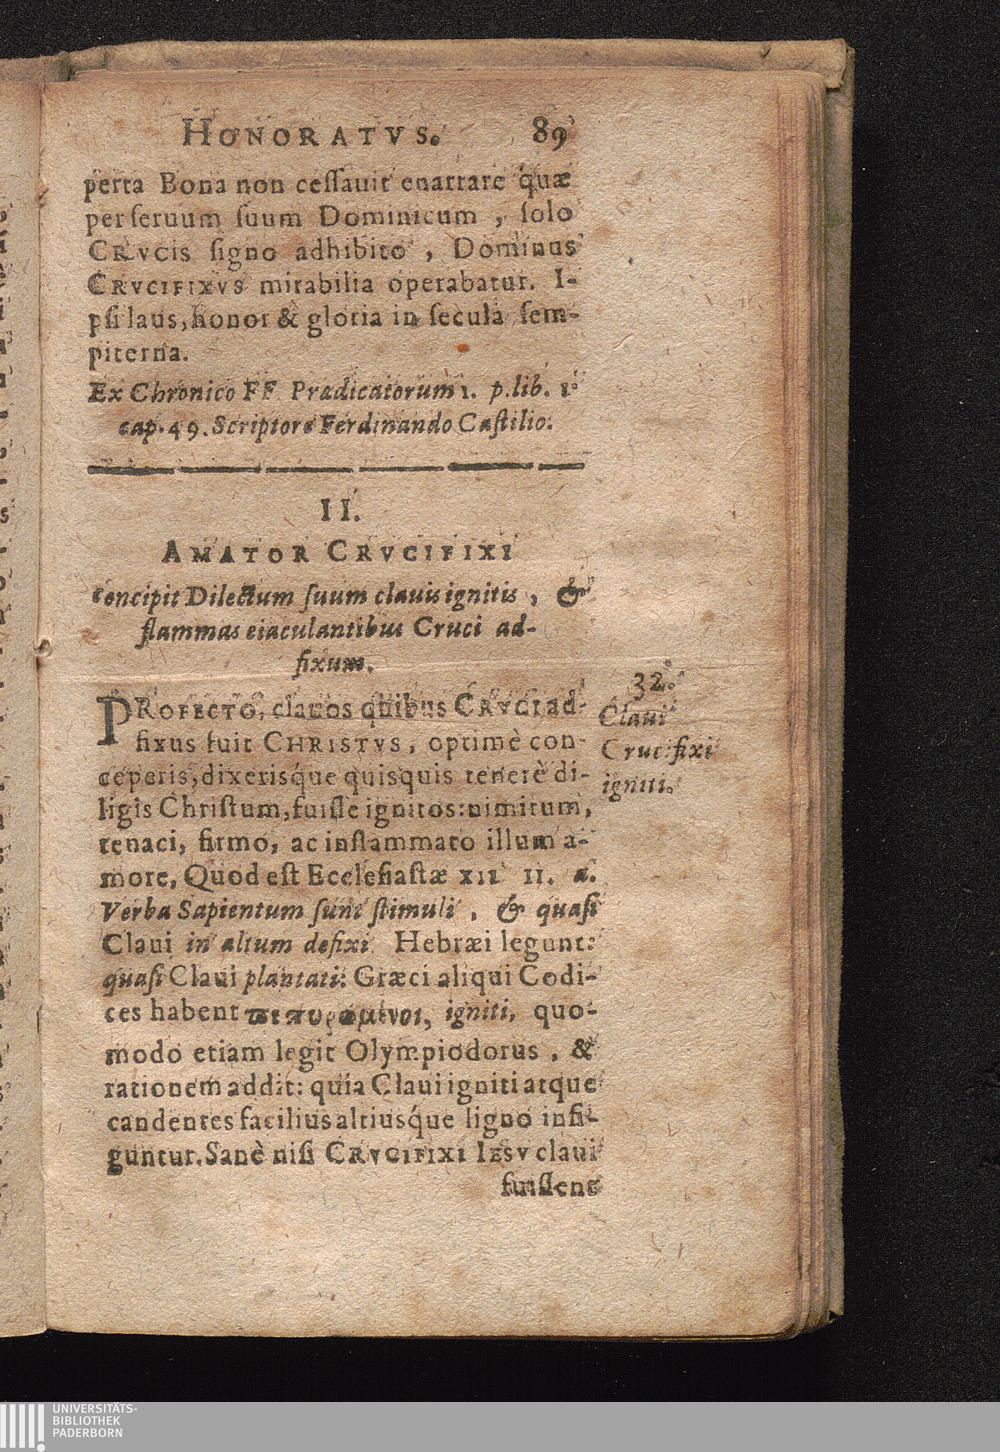 HONORATVS. 89
perta Bona non cessauit enarrare quæ
per seruum suum Dominicum, solo
CRVCIS signo adhibito, Dominus
CRVCIFIXVS mirabilia operabatur. I-
psi laus, honor & gloria in secula sem-
piterna.
Ex Chronico FF Prædicatorum 1. p. lib. 1.
cap. 49. Scriptore Ferdinando Castilio.
II.
AMATOR CRVCIFIXI
concipit Dilectum suum clauis ignitis, &
flammas eiaculantibus Cruci ad-
fixum.
PROFECTO, clauos quibus CRVCI ad-
fixus fuit CHRISTVS, optimè con-
ceperis, dixerisque quisquis tenerè di-
ligis Christum, fuisse ignitos: nimirum,
tenaci, firmo, ac inflammato illum a-
more, Quod est Ecclesiastæ XII II. a.
Verba Sapientum sunt stimuli, & quasi
Claui in altum defixi. Hebræi legunt:
quasi Claui plantati: Græci aliqui Codi-
ces habent πεπυρωμένοι, igniti, quo-
modo etiam legit Olympiodorus, &
rationem addit: quia Claui igniti atque
candentes facilius altiusque ligno infi-
guntur. Sanè nisi CRVCIFIXI IESV claui
fuissent
32.
Claui
Crucifixi
igniti.
UNIVERSITÄTS-
BIBLIOTHEK
PADERBORN